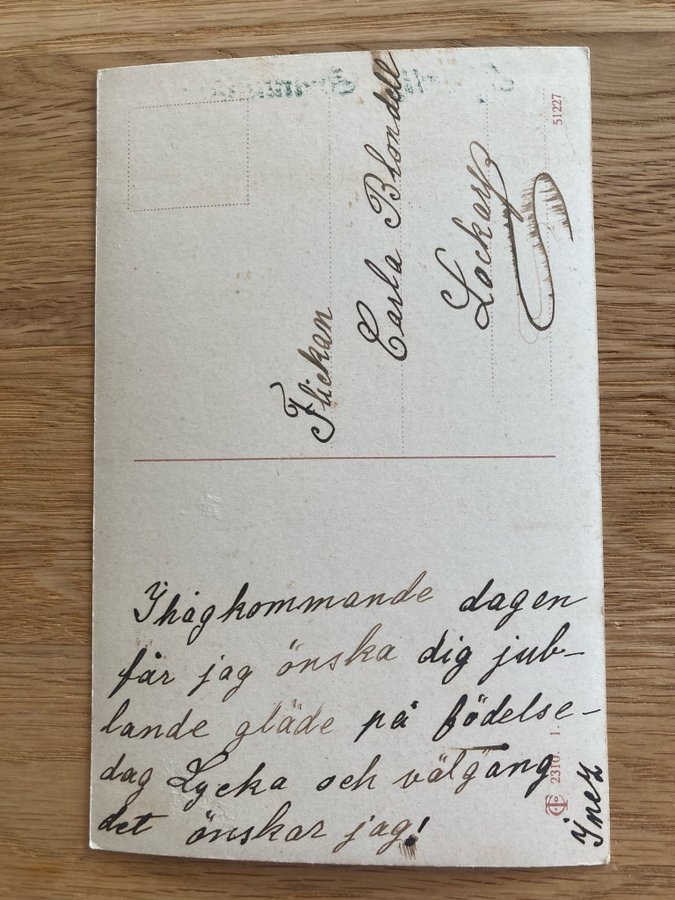 Flickan
Carla Blondell
Lockary
51227
Ihågkommande dagen
får jag önska dig jub-
lande gläde på födelse-
dag Lycka och välgång
det önskar jag!
Inez
2310. 1.